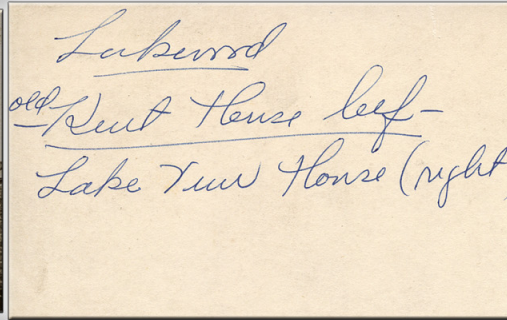 Lakewood
old Kent House left -
Lake View House (right